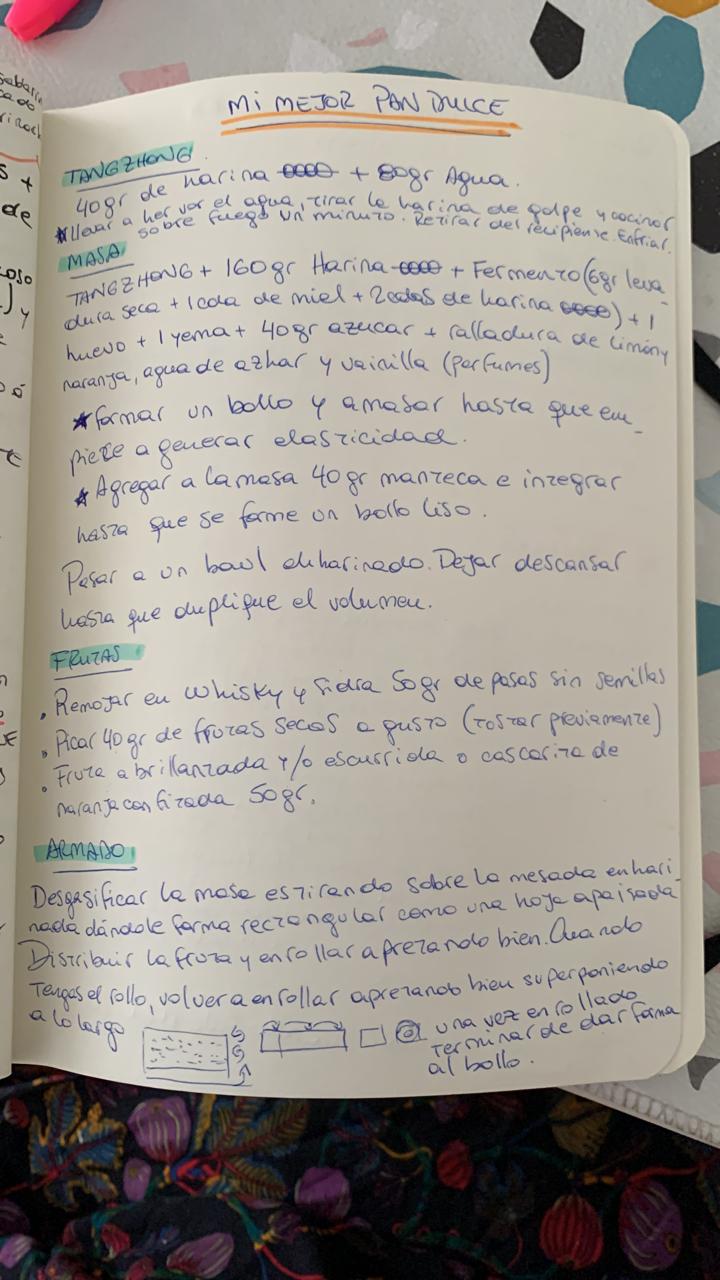 MI MEJOR PAN DULCE
TANGZHONG
40gr de harina + 80gr Agua.
*llevar a hervor el agua, tirar la harina de golpe y cocinar
sobre fuego un minuto. Retirar del recipiente. Enfriar.
MASA
TANGZHONG + 160gr Harina + Fermento (6gr leva
dura seca + 1 cda de miel + 2 cdas de harina) + 1
huevo + 1 yema + 40gr azucar + ralladura de limón y
naranja, agua de azhar y vainilla (perfumes)
*formar un bollo y amasar hasta que em_
piece a generar elasticidad.
*Agregar a la masa 40gr manteca e integrar
hasta que se forme un bollo liso.
Pasar a un bowl enharinado. Dejar descansar
hasta que duplique el volumen.
FRUTAS
• Remojar en whisky y sidra 50gr de pasas sin semillas
• Picar 40gr de frutas secas a gusto (tostar previamente)
• Fruta abrillantada y/o escurrida o cascarita de
naranja confitada 50gr.
ARMADO
Desgasificar la masa estirando sobre la mesada enhari_
nada dándole forma rectangular como una hoja apaisada
Distribuir la fruta y enrollar apretando bien. Cuando
tengas el rollo, volver a enrollar apretando bien superponiendo
a lo largo
una vez enrollado
terminar de dar forma
al bollo.